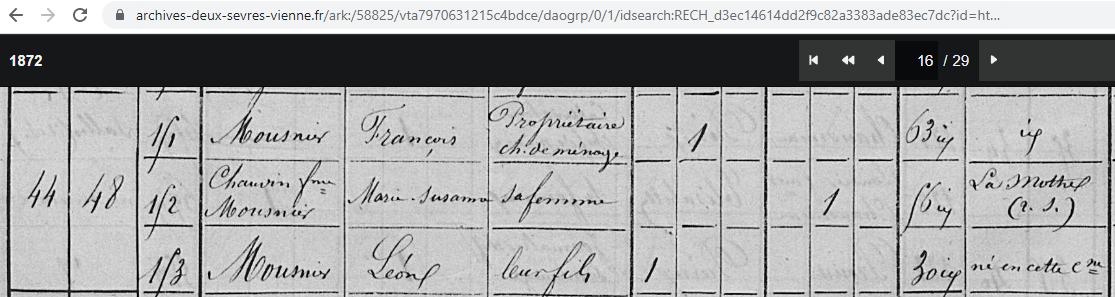 archives-deux-sevres-vienne.fr/ark:/58825/vta7970631215c4bdce/daogrp/0/1/idsearch:RECH_d3ec14614dd2f9c82a3383ade83ec7dc?id=ht...
1872 16 / 29
1/1 Mousnier François Propriétaire ch. de ménage 1 63 id
44 48 1/2 Chauvin fme Mousnier Marie-Susanne sa femme 1 56 La Mothe (2. S.)
1/3 Mousnier Léon leur fils 1 30 né en cette Cne